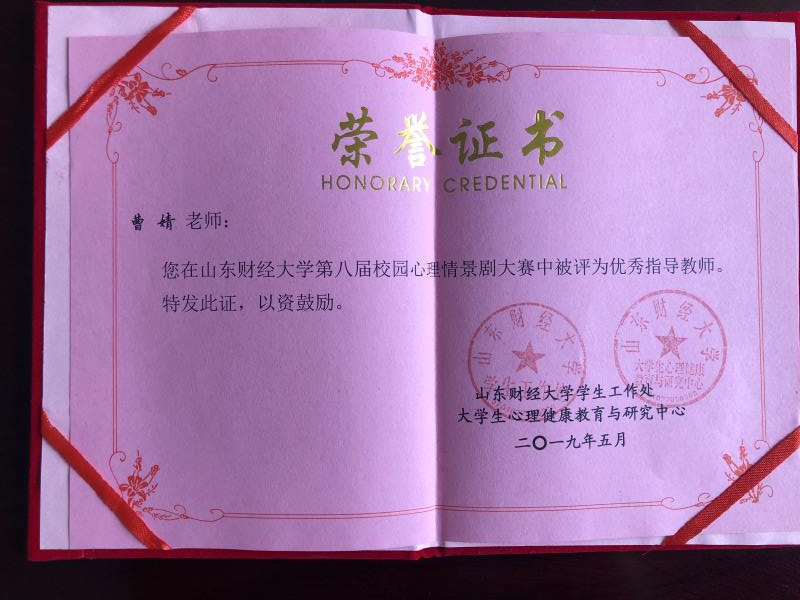 荣誉证书
HONORARY CREDENTIAL
曹 婧 老师：
您在山东财经大学第八届校园心理情景剧大赛中被评为优秀指导教师。
特发此证，以资鼓励。
山东财经大学
学生工作处
山东财经大学
大学生心理健康
教育与研究中心
山东财经大学学生工作处
大学生心理健康教育与研究中心
二〇一九年五月